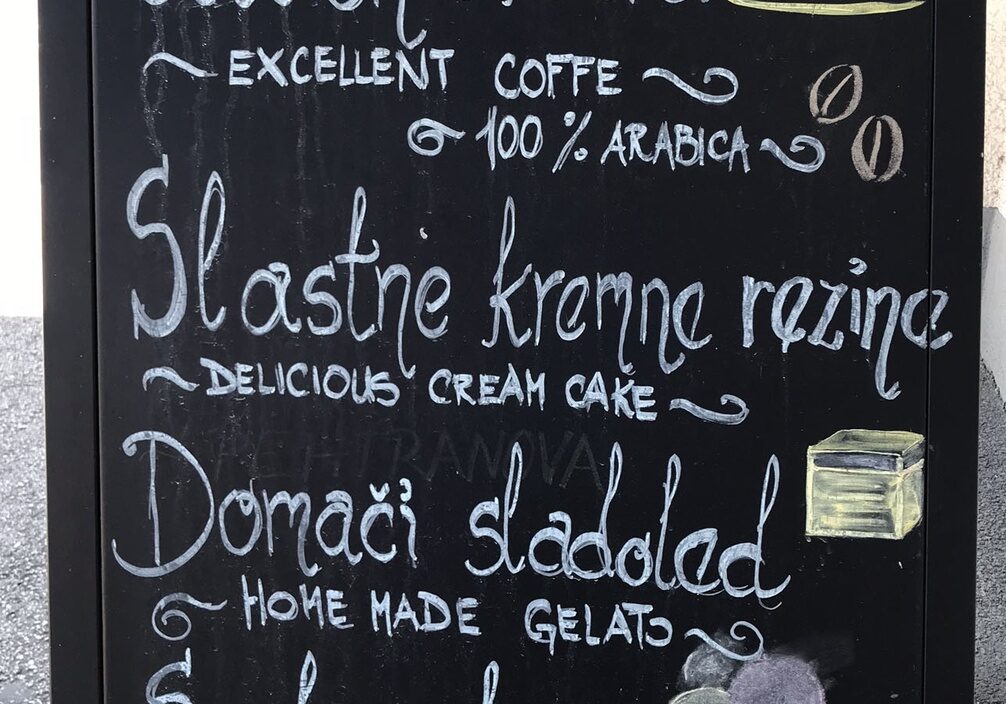 EXCELLENT COFFE
100% ARABICA
Slastne kremne rezine
DELICIOUS CREAM CAKE
Domači sladoled
HOME MADE GELATO